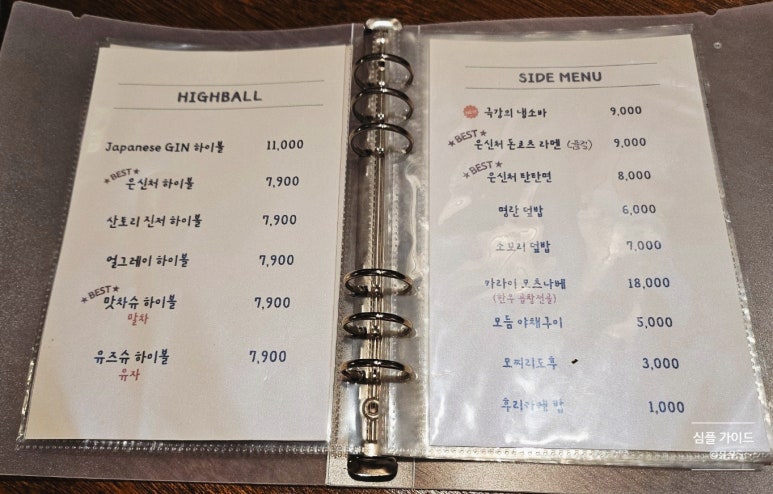 HIGHBALL
Japanese GIN 하이볼 11,000
★BEST★
은신처 하이볼 7,900
산토리 진저 하이볼 7,900
얼그레이 하이볼 7,900
★BEST★
맛차슈 하이볼 7,900
말차
유즈슈 하이볼 7,900
유자
SIDE MENU
극강의 냉소바 9,000
★BEST★
은신처 돈코츠 라멘 9,000
★BEST★
은신처 탄탄면 8,000
명란 덮밥 6,000
소보러 덮밥 7,000
카라이 모츠나베 18,000
(한우 곱창전골)
모듬 야채구이 5,000
모찌리도후 3,000
후리카케 밥 1,000
심플 가이드